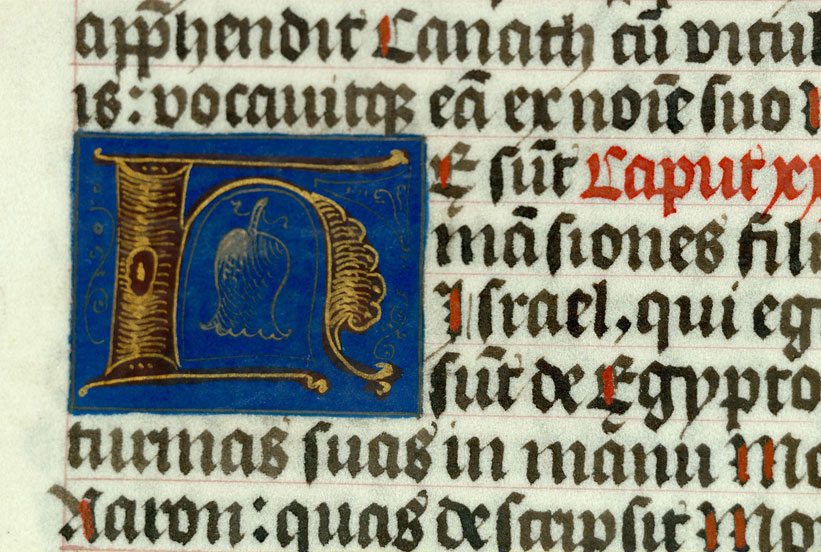 app̄hendit Canath cū vicul
is: vocavitqꝫ eā ex noīe suo
HE sūt Caput xx
māsiones fili
Israel, qui eg
sūt de Egypto
turmas suas in manu Mo
Aaron: quas descripsit Mo